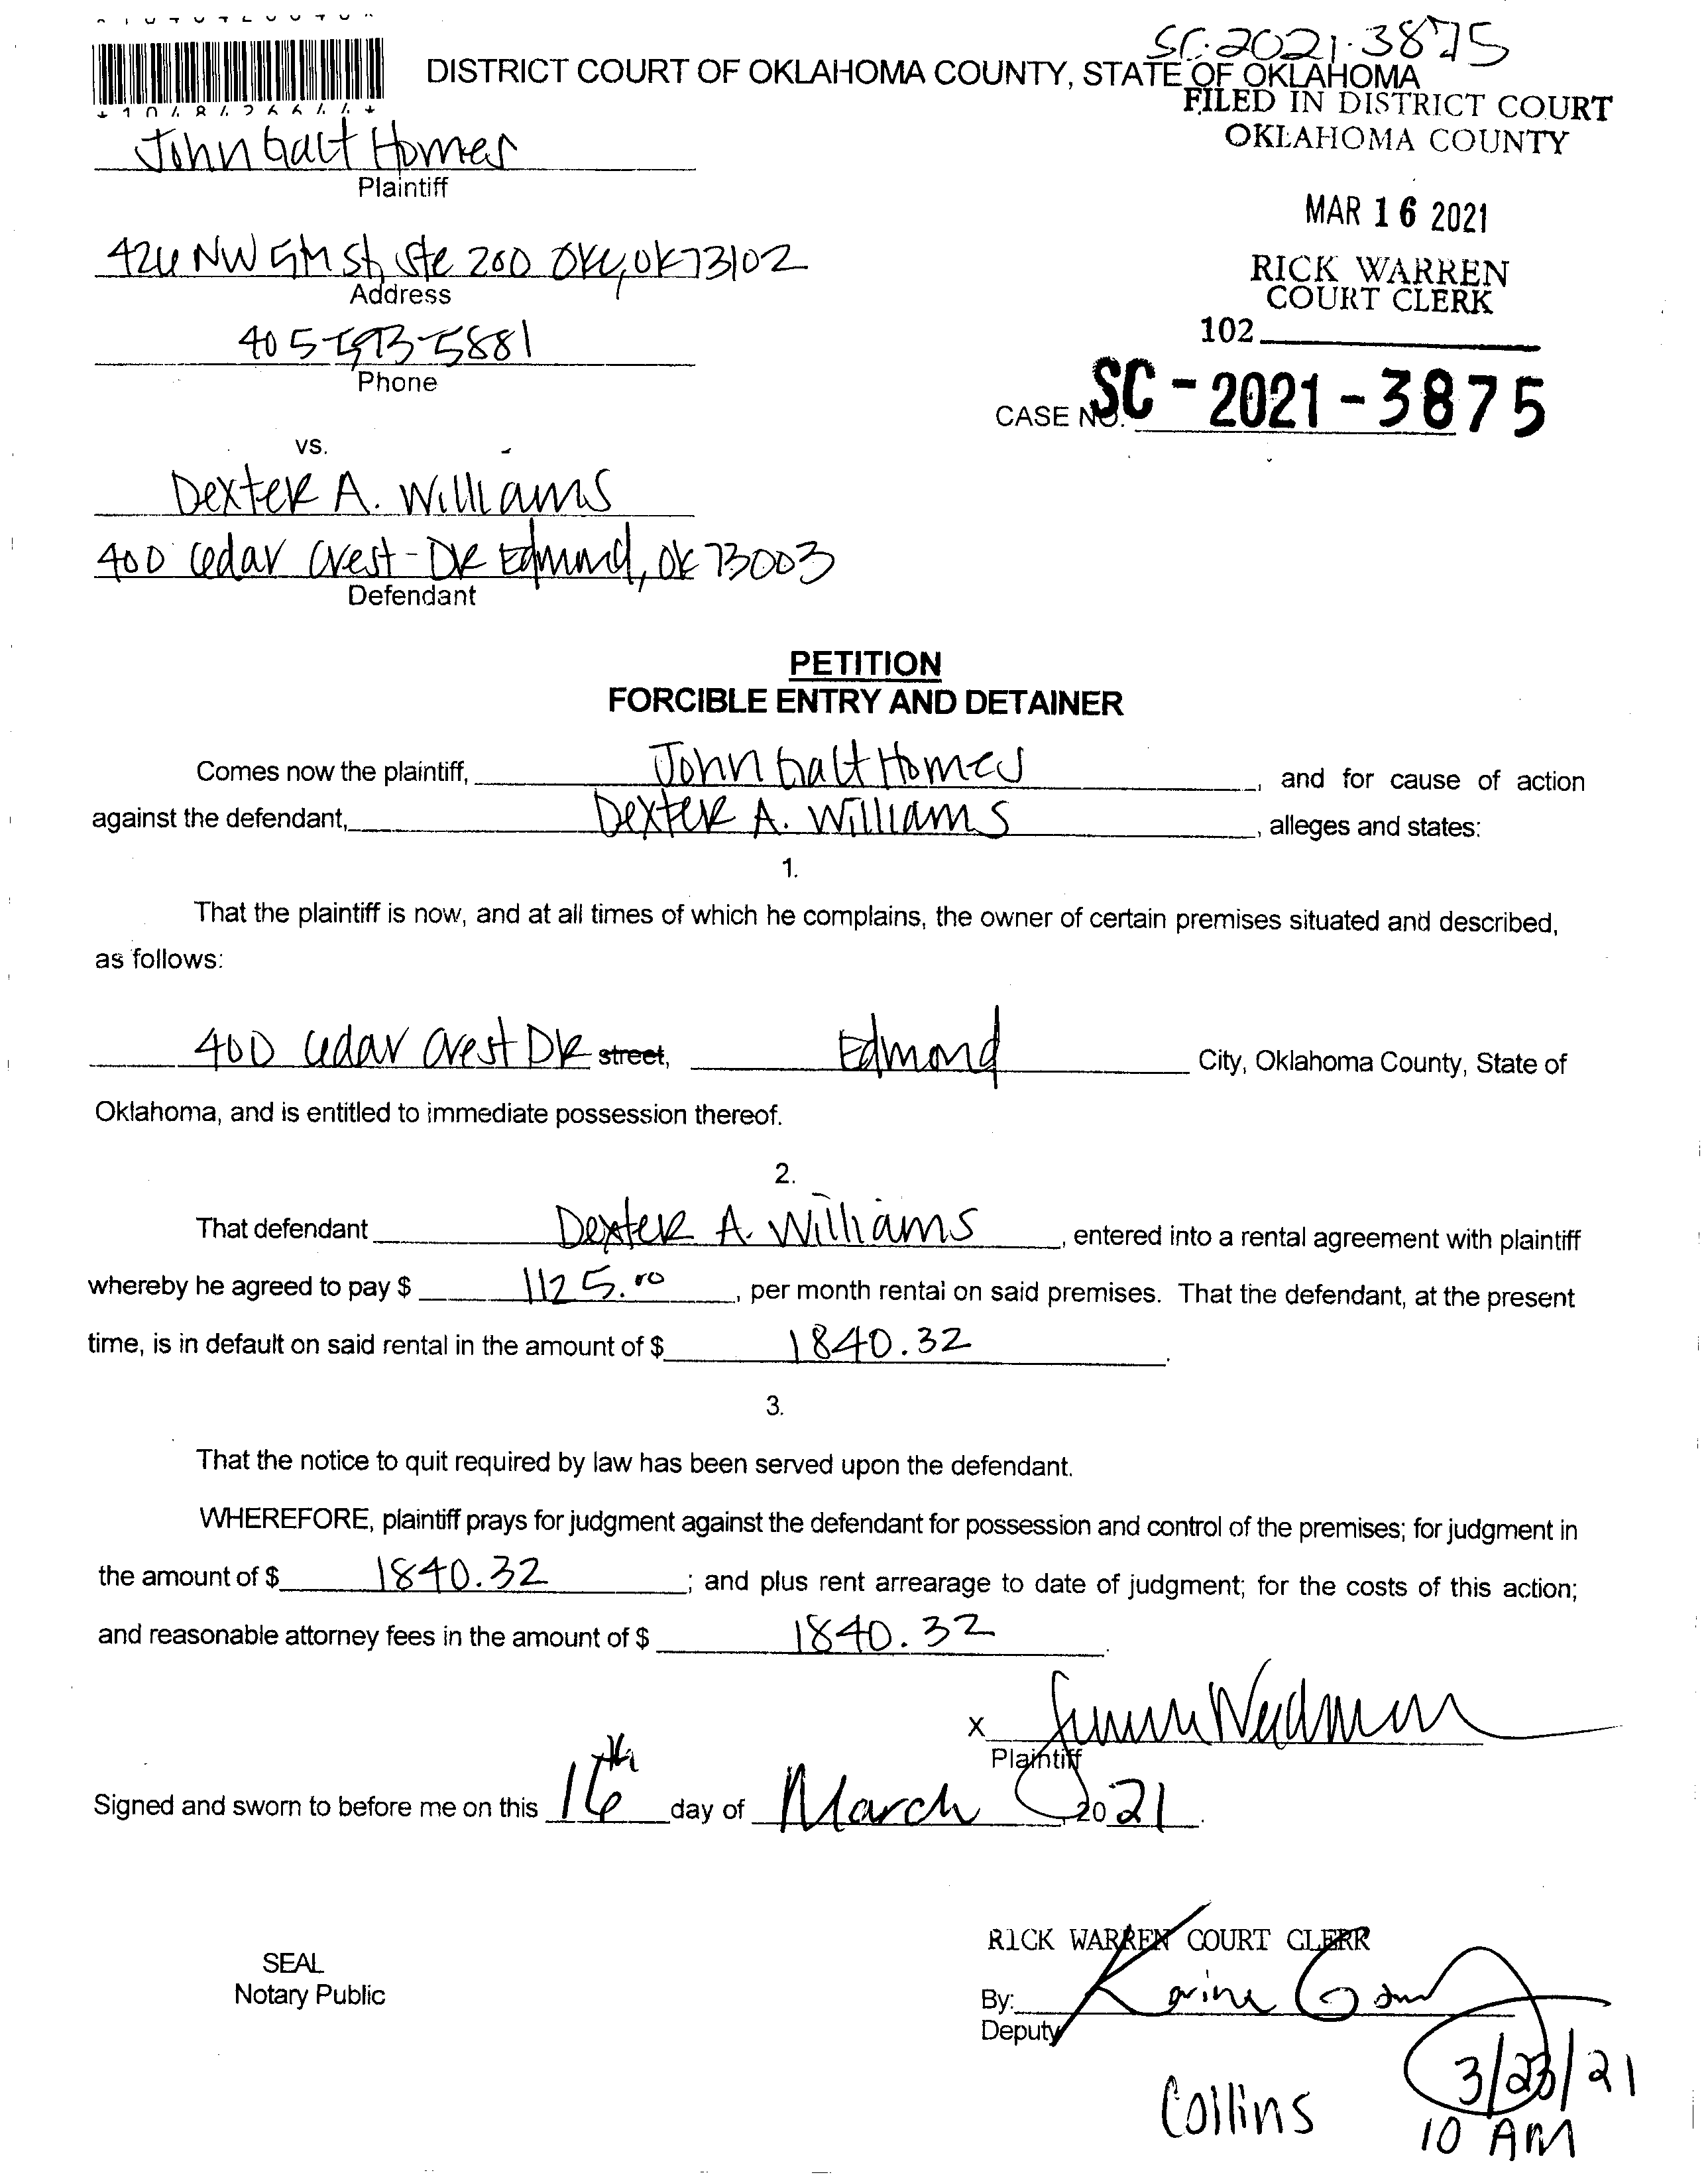 SC-2021-3875
DISTRICT COURT OF OKLAHOMA COUNTY, STATE OF OKLAHOMA
FILED IN DISTRICT COURT
OKLAHOMA COUNTY
John Galt Homes
Plaintiff
MAR 16 2021
NW 5th St, Ste 200 OKC, OK 73102
Address
RICK WARREN
COURT CLERK
102
405-593-5881
Phone
CASE NO. SC-2021-3875
vs.
Dexter A. Williams
400 Cedar Crest Dr Edmond, OK 73003
Defendant
PETITION
FORCIBLE ENTRY AND DETAINER
Comes now the plaintiff, John Galt Homes, and for cause of action
against the defendant, Dexter A. Williams, alleges and states:
1.
That the plaintiff is now, and at all times of which he complains, the owner of certain premises situated and described,
as follows:
400 Cedar Crest Dr street, Edmond City, Oklahoma County, State of
Oklahoma, and is entitled to immediate possession thereof.
2.
That defendant Dexter A. Williams, entered into a rental agreement with plaintiff
whereby he agreed to pay $ 1125.00, per month rental on said premises. That the defendant, at the present
time, is in default on said rental in the amount of $ 1840.32.
3.
That the notice to quit required by law has been served upon the defendant.
WHEREFORE, plaintiff prays for judgment against the defendant for possession and control of the premises; for judgment in
the amount of $ 1840.32; and plus rent arrearage to date of judgment; for the costs of this action;
and reasonable attorney fees in the amount of $ 1840.32.
X
Plaintiff
Signed and sworn to before me on this 16th day of March, 2021.
RICK WARREN COURT CLERK
SEAL
Notary Public
By: Karina
Deputy
3/23/21
Collins
10 AM